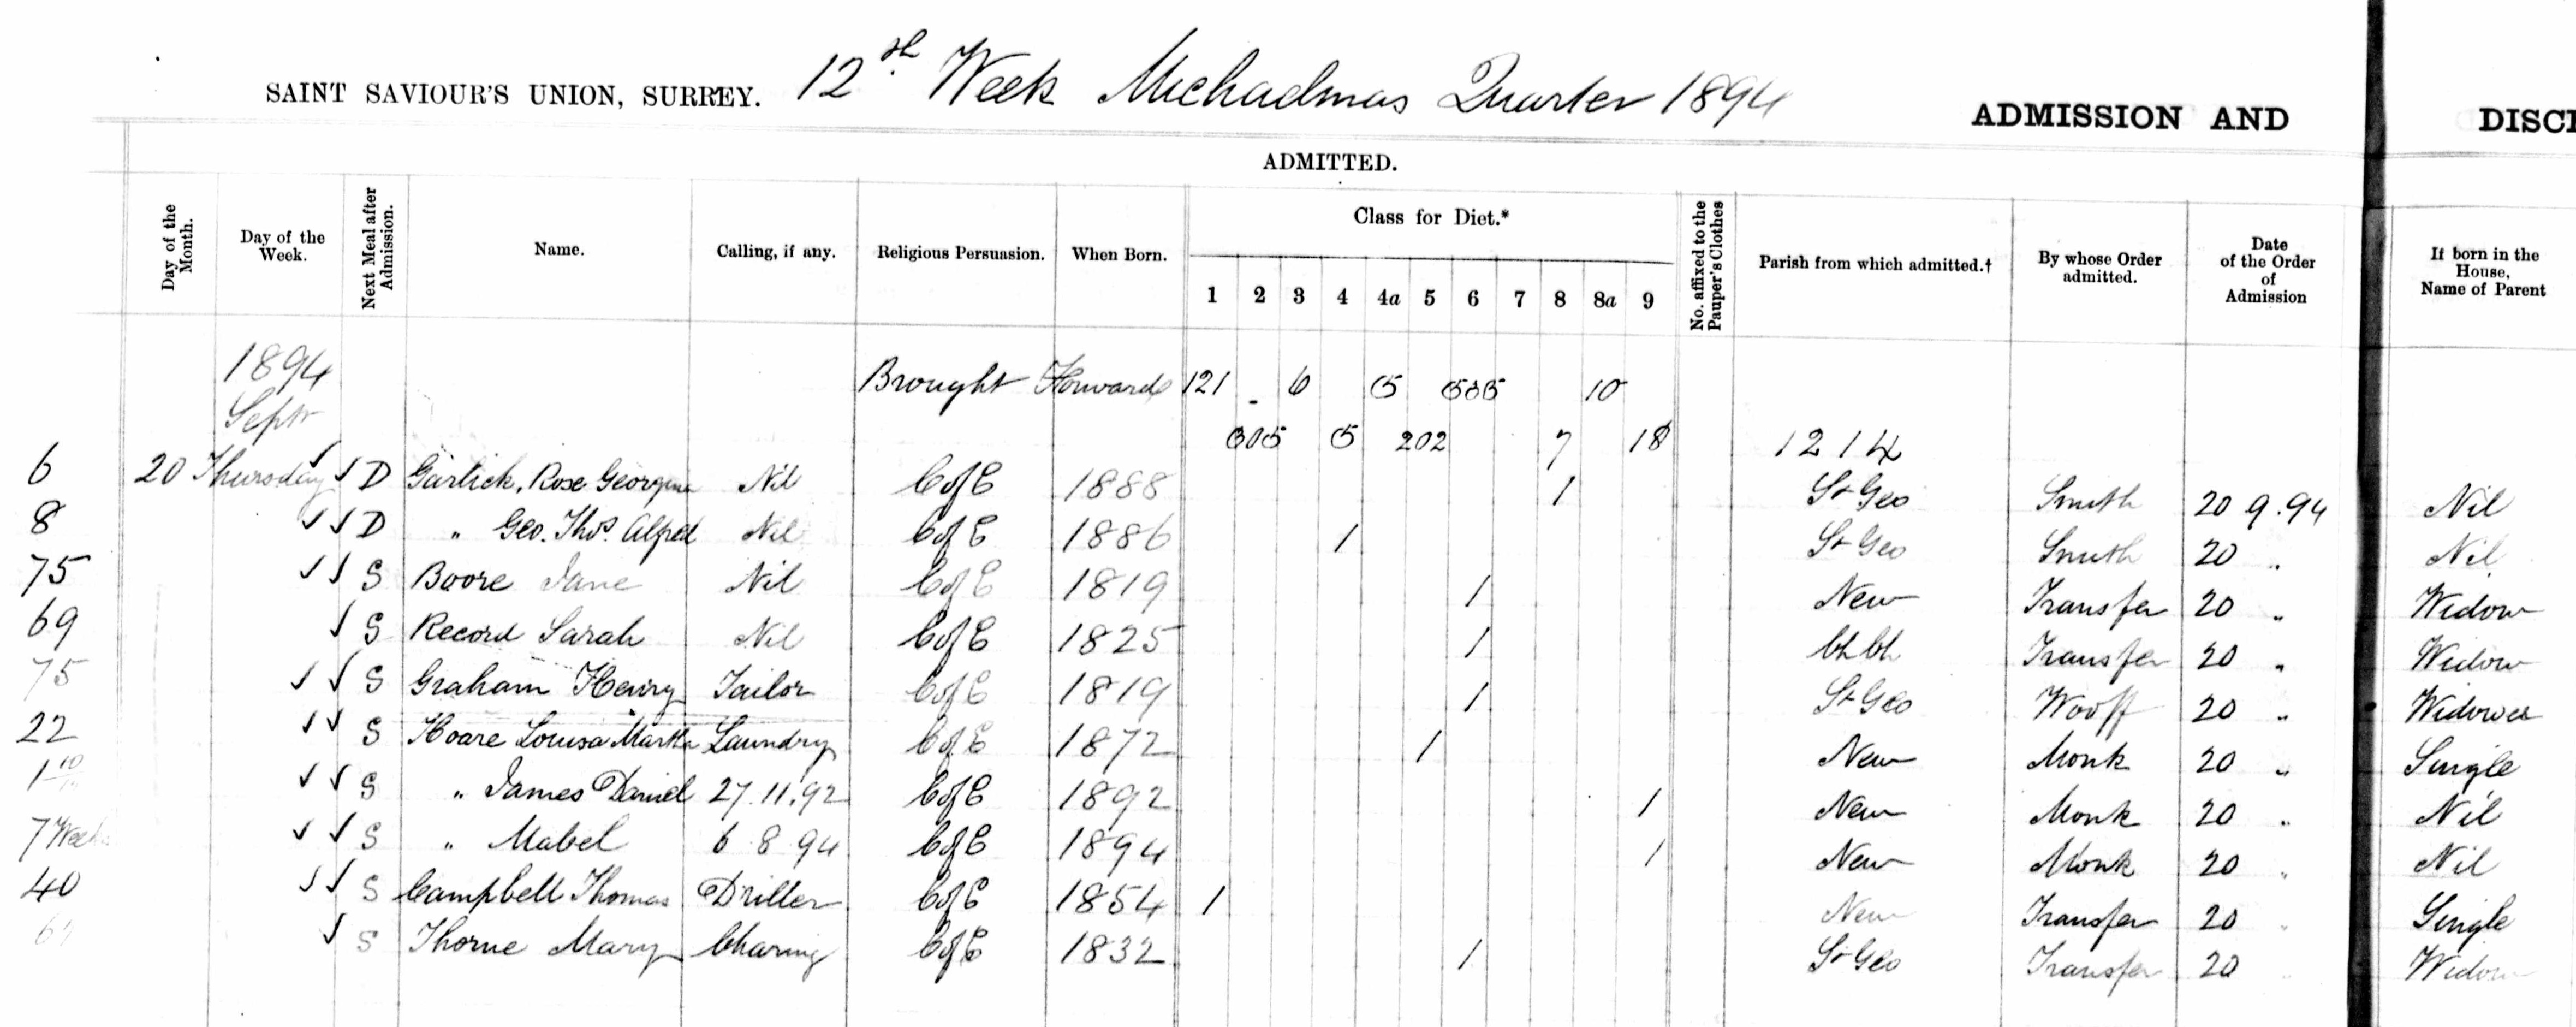 SAINT SAVIOUR'S UNION, SURREY. 12th Week Michaelmas Quarter 1894 ADMISSION AND DISCH
ADMITTED.
Day of the Month. Day of the Week. Next Meal after Admission. Name. Calling, if any. Religious Persuasion. When Born. Class for Diet.* No. affixed to the Pauper's Clothes Parish from which admitted.† By whose Order admitted. Date of the Order of Admission If born in the House, Name of Parent
1 2 3 4 4a 5 6 7 8 8a 9
1894 Brought Forward 121 6 5 535 10
Sept 305 5 202 7 18 1214
6 20 Thursday D Garlick, Rose Georgina Nil C of E 1888 1 St Geo Smith 20 9.94 Nil
8 D " Geo. Thos. Alfred Nil C of E 1886 1 St Geo Smith 20 " Nil
75 S Boore Jane Nil C of E 1819 1 New Transfer 20 " Widow
69 S Record Sarah Nil C of E 1825 1 Ch Ch Transfer 20 " Widow
75 S Graham Henry Tailor C of E 1819 1 St Geo Wooff 20 " Widower
22 S Hoare Louisa Martha Laundry C of E 1872 1 New Monk 20 " Single
1 10/12 S " James Daniel 27.11.92 C of E 1892 1 New Monk 20 " Nil
7 Weeks S " Mabel 6 8 94 C of E 1894 1 New Monk 20 " Nil
40 S Campbell Thomas Driller C of E 1854 1 New Transfer 20 " Single
S Thorne Mary Charing C of E 1832 1 St Geo Transfer 20 " Widow